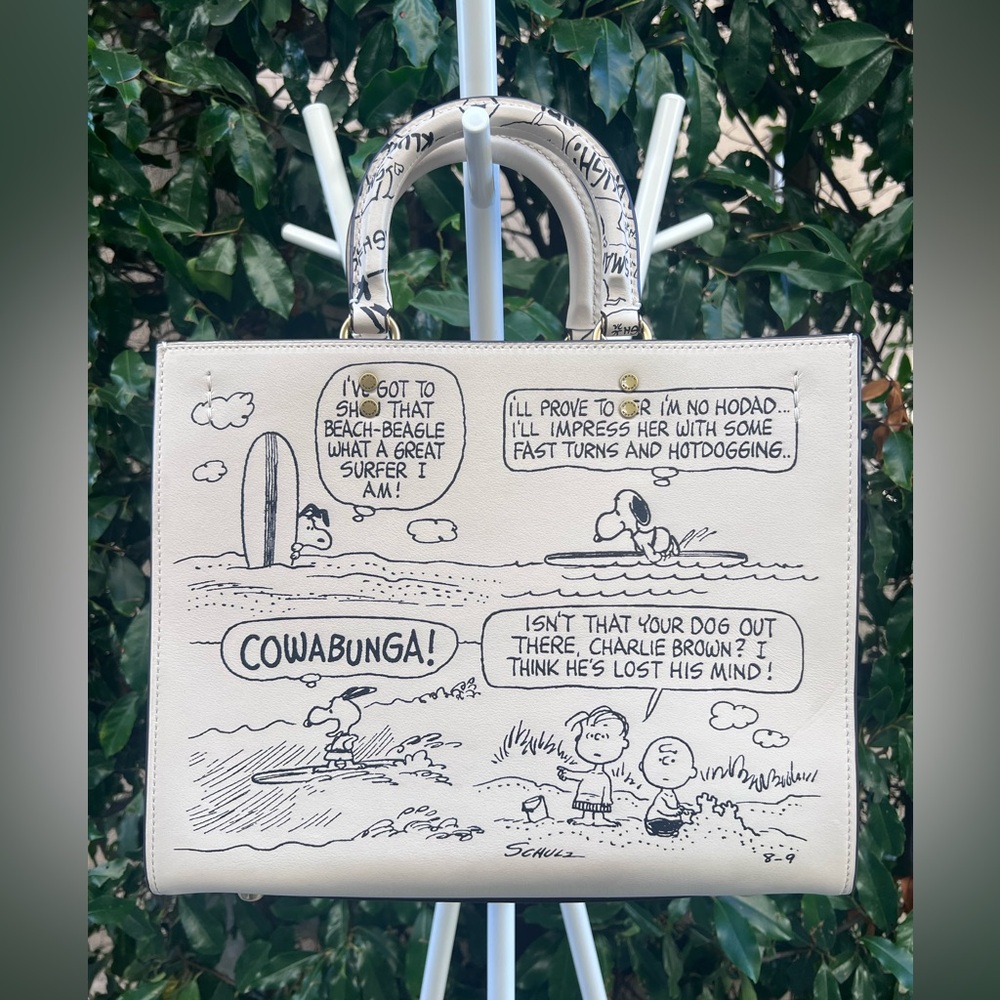 I'VE GOT TO
THAT
BEACH-BEAGLE
WHAT A GREAT
SURFER I
AM!
I'LL PROVE TO I'M NO HODAD...
I'LL IMPRESS HER WITH SOME
FAST TURNS AND HOTDOGGING..
COWABUNGA!
ISN'T THAT YOUR DOG OUT
THERE, CHARLIE BROWN? I
THINK HE'S LOST HIS MIND!
SCHULZ
8-9